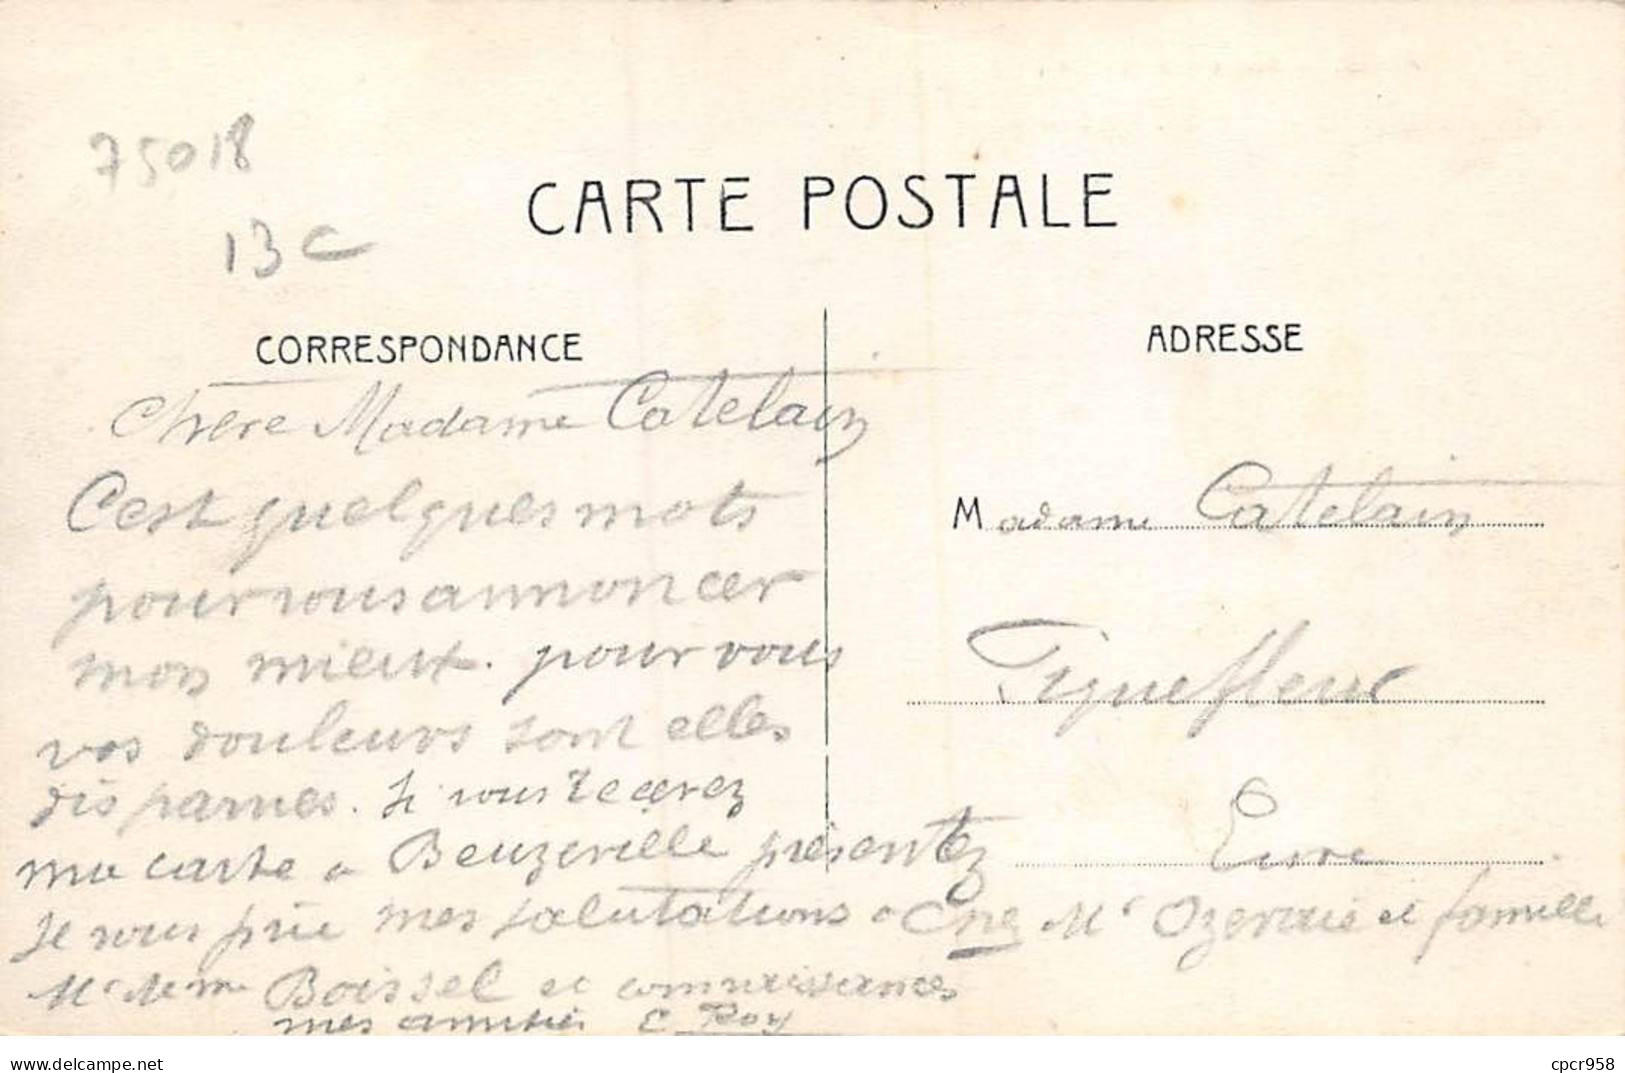 75018
13 c
CARTE POSTALE
CORRESPONDANCE
Chere Madame Catelain
Cest quelques mots
pour vous annoncer
mon mieux. pour vous
vos douleurs sont elles
disparues. Si vous recevez
ma carte a Beuzeville présentez
Je vous prie mes salutations a M. et famille
Mr Mme Boissel et connaissances
mes amitiés E. Roy
ADRESSE
Madame Catelain
Fiquefleur
Eure
delcampe.net
cpcr958